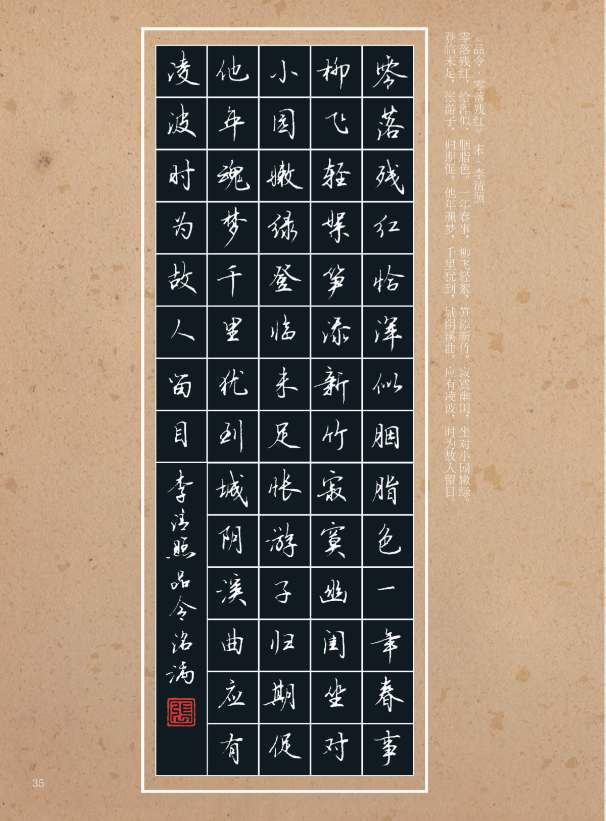 品令·零落残红 宋·李清照
零落残红，恰浑似、胭脂色。一年春事，柳飞轻絮，笋添新竹。寂寞幽闺，坐对小园嫩绿。
登临未足，怅游子、归期促。他年魂梦，千里犹到，城阴溪曲。应有凌波，时为故人留目。
零落残红恰浑似胭脂色一年春事
柳飞轻絮笋添新竹寂寞幽闺坐对
小园嫩绿登临未足怅游子归期促
他年魂梦千里犹到城阴溪曲应有
凌波时为故人留目
李清照品令
張
35